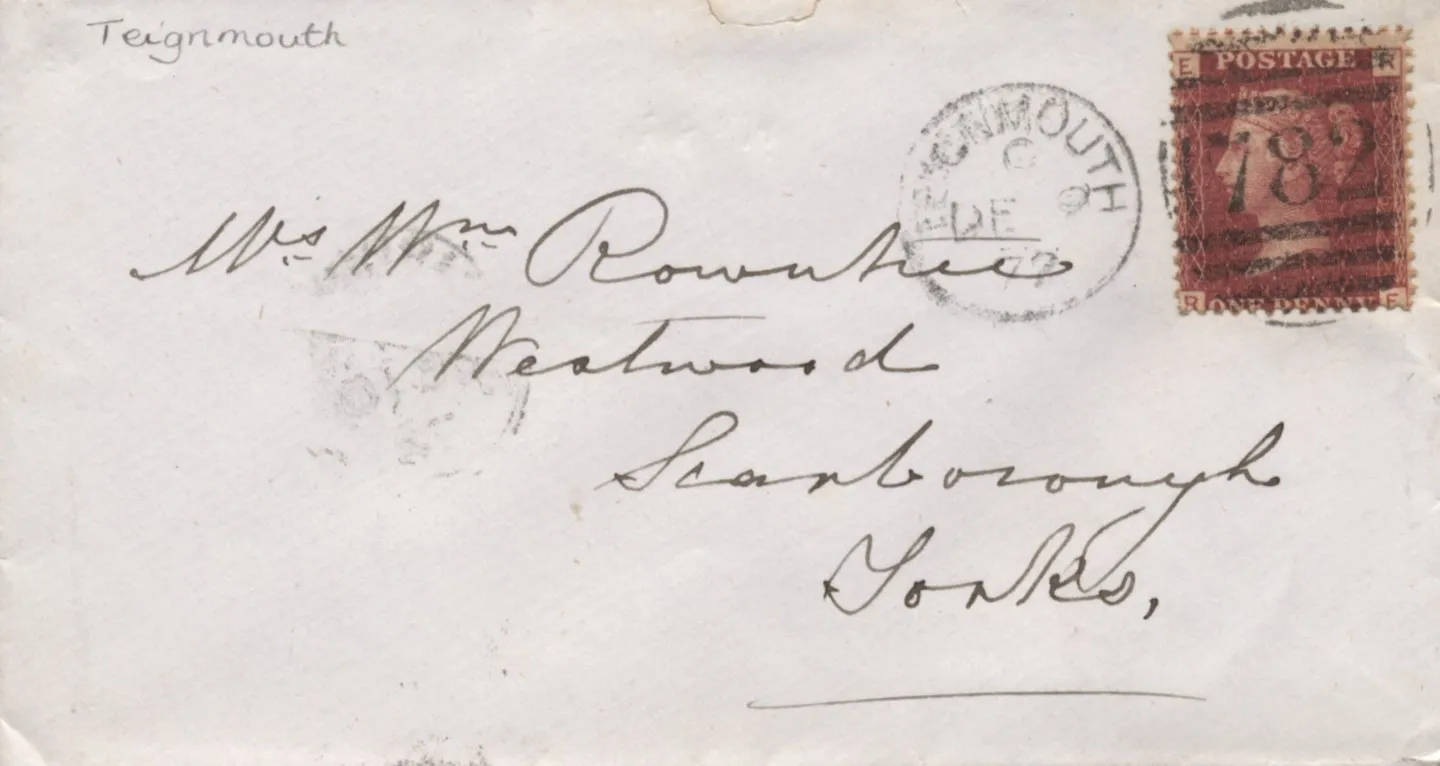 Teignmouth
E POSTAGE R
782
R ONE PENNY E
TEIGNMOUTH
C
DE 9
77
Mrs Wm Rowntree
Westwood
Scarborough
Yorks,